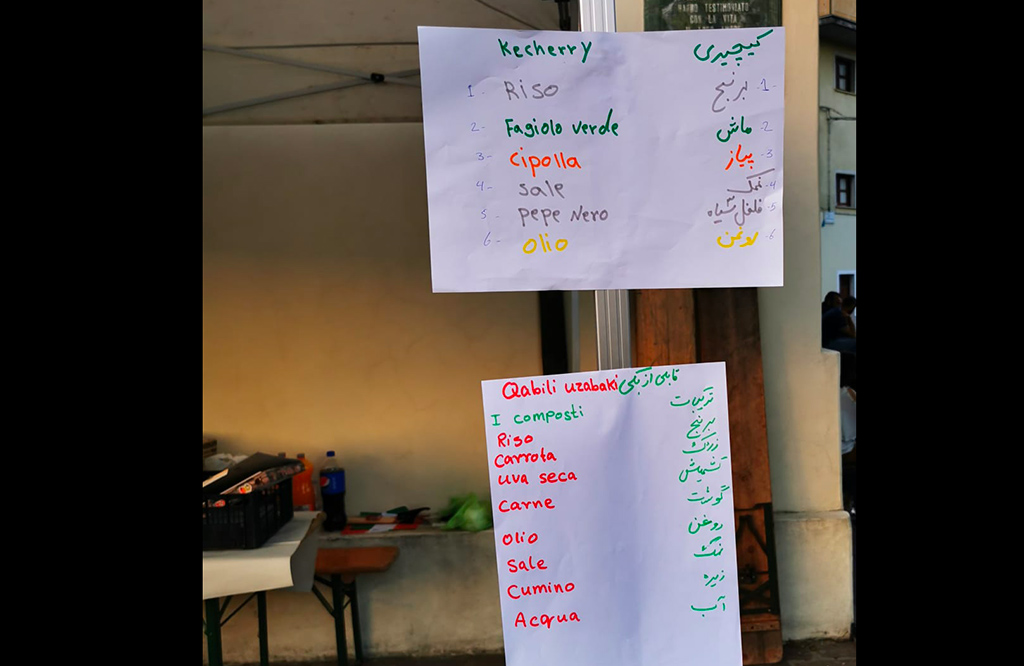 MAURO TESTIMONIATO
CON LA VITA
Kecherry کیچیری
1- Riso برنج -1-
2- Fagiolo verde ماش -2
3- cipolla پیاز -3
4- sale نمک -4
5- pepe Nero فلفل سیاه -5
6- olio روغن -6
Qabili uzabaki قابلی ازبکی
I composti ترکیبات
Riso برنج
Carrota زردک
uva seca کشمیش
Carne گوشت
olio روغن
Sale نمک
Cumino زیره
Acqua آب